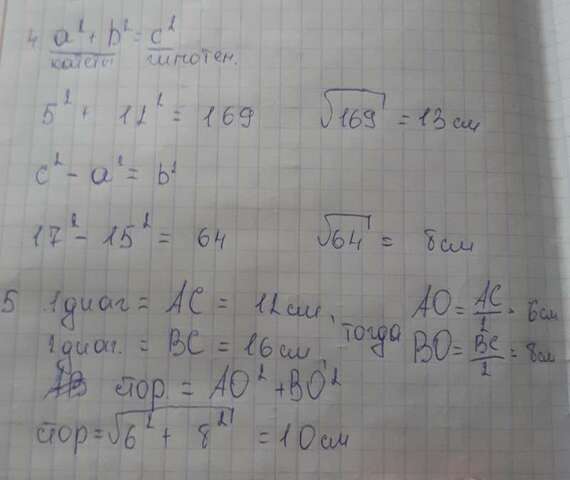 4 a² + b² = c²
катеты гипотен.
5² + 12² = 169 √169 = 13 см
c² - a² = b²
17² - 15² = 64 √64 = 8 см
5 1 диаг = AC = 12 см, тогда AO = AC/2 = 6 см
1 диаг. = BC = 16 см, BO = BC/2 = 8 см
стор. = AO² + BO²
стор = √6² + 8² = 10 см